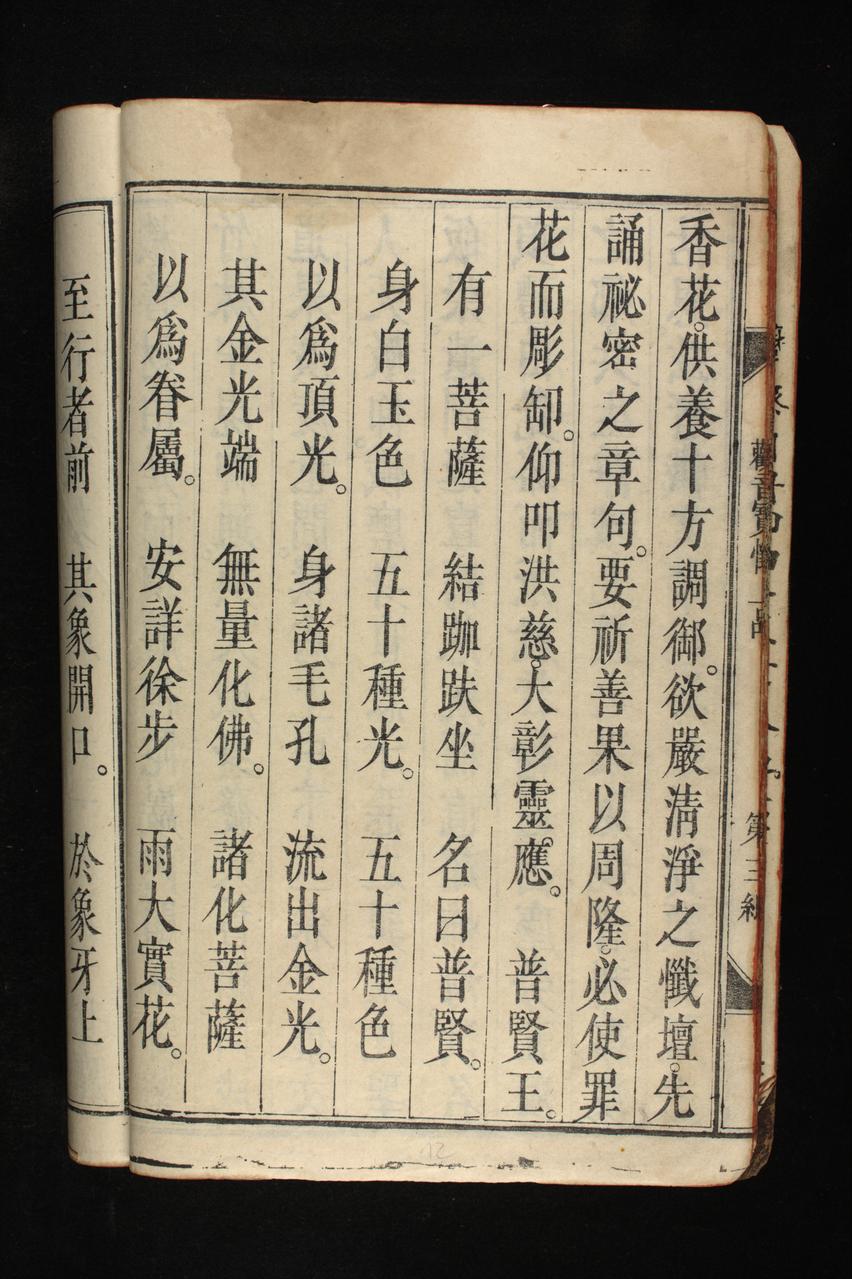 香花。供養十方調御。欲嚴淸淨之懺壇。先
誦祕密之章句。要祈善果以周隆。必使罪
花而彫卸。仰叩洪慈。大彰靈應。 普賢王。
有一菩薩 結跏趺坐 名曰普賢。
身白玉色 五十種光。 五十種色
以爲頂光。 身諸毛孔 流出金光。
其金光端 無量化佛。 諸化菩薩
以爲眷屬。 安詳徐步 雨大寳花。
至行者前 其象開口。 於象牙上
第三